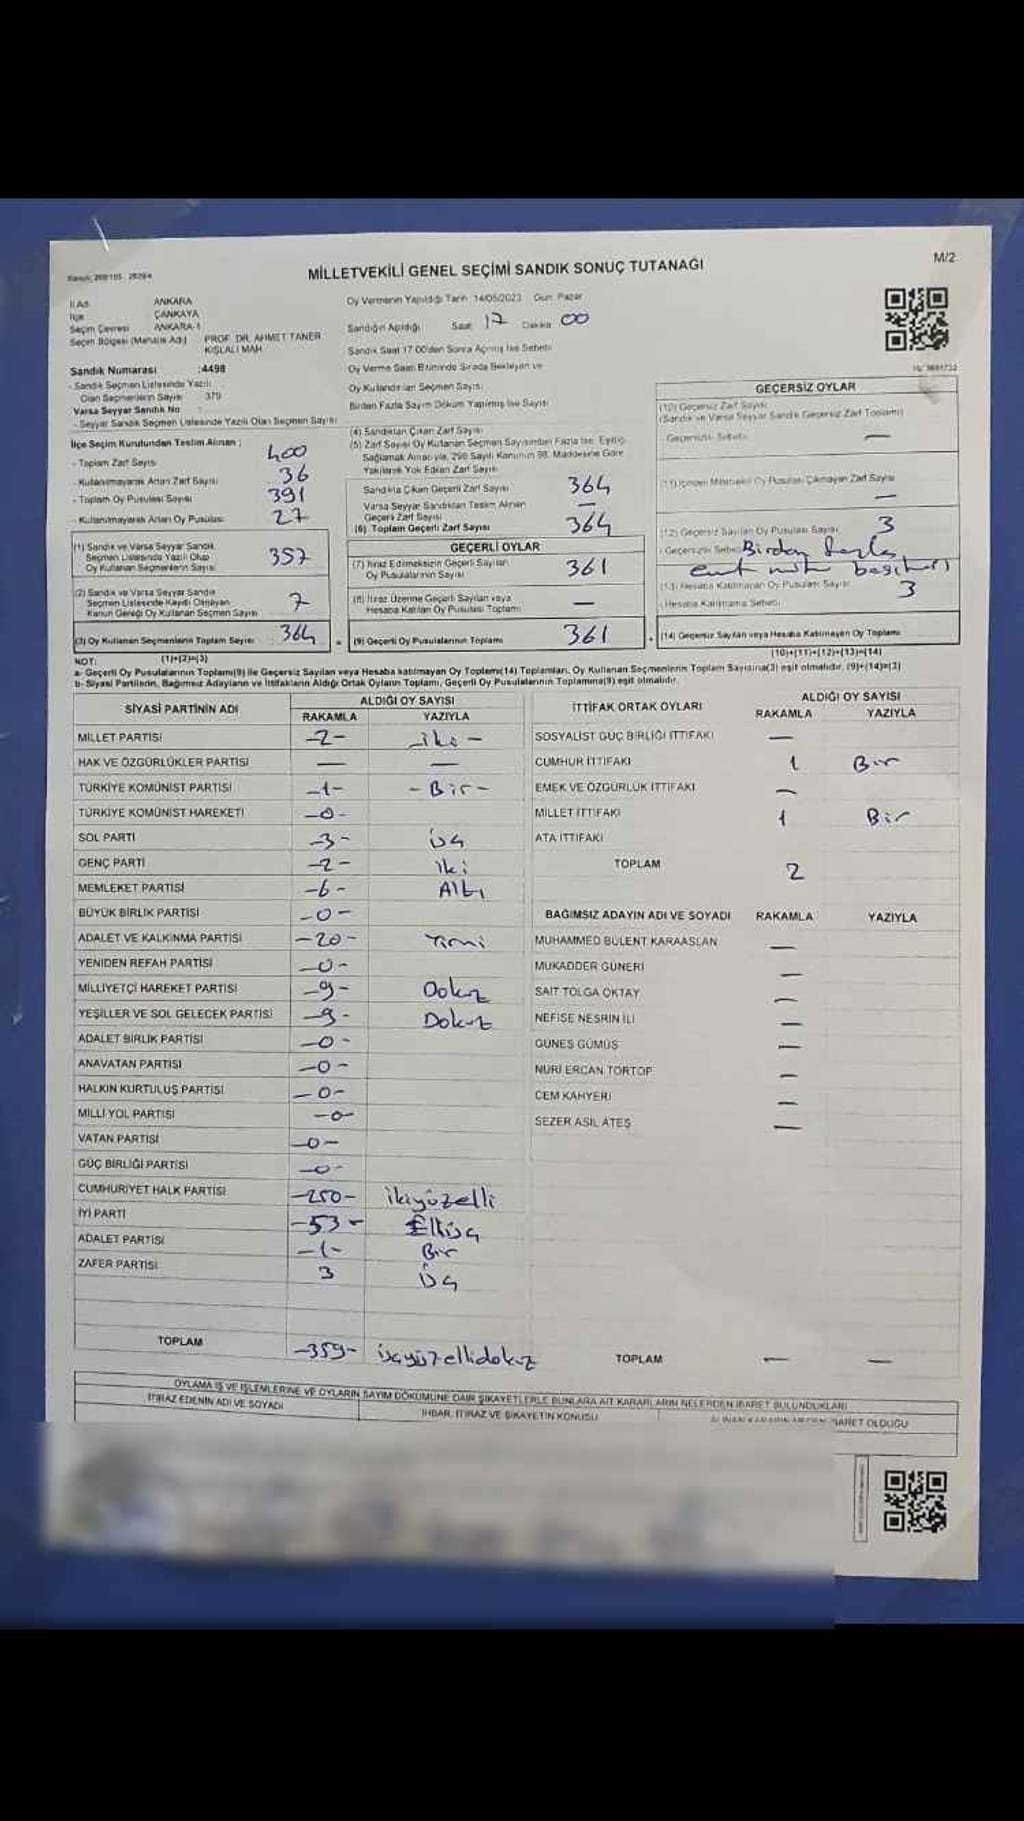 MİLLETVEKİLİ GENEL SEÇİMİ SANDIK SONUÇ TUTANAĞI
M/2
İl Adı ANKARA
İlçe ÇANKAYA
Seçim Çevresi ANKARA-1
Seçim Bölgesi (Mahalle Adı) PROF. DR. AHMET TANER KIŞLALI MAH.
Sandık Numarası :4498
- Sandık Seçmen Listesinde Yazılı
Olan Seçmenlerin Sayısı 379
Varsa Seyyar Sandık No :
- Seyyar Sandık Seçmen Listesinde Yazılı Olan Seçmen Sayısı
Oy Vermenin Yapıldığı Tarih 14/05/2023 Gün Pazar
Sandığın Açıldığı Saat 17 Dakika 00
Sandık Saat 17.00'den Sonra Açılmış İse Sebebi
Oy Verme Saati Bitiminde Sırada Bekleyen ve
Oy Kullandırılan Seçmen Sayısı
Birden Fazla Sayım Döküm Yapılmış İse Sayısı
İlçe Seçim Kurulundan Teslim Alınan :
- Toplam Zarf Sayısı 400
- Kullanılmayarak Artan Zarf Sayısı 36
- Toplam Oy Pusulası Sayısı 391
- Kullanılmayarak Artan Oy Pusulası 27
(1) Sandık ve Varsa Seyyar Sandık
Seçmen Listesinde Yazılı Olup
Oy Kullanan Seçmenlerin Sayısı 357
(2) Sandık ve Varsa Seyyar Sandık
Seçmen Listesinde Kaydı Olmayan
Kanun Gereği Oy Kullanan Seçmen Sayısı 7
(3) Oy Kullanan Seçmenlerin Toplam Sayısı 364
(1)+(2)=(3)
(4) Sandıktan Çıkan Zarf Sayısı
(5) Zarf Sayısı Oy Kullanan Seçmen Sayısından Fazla İse, Eşitliği
Sağlamak Amacıyla, 298 Sayılı Kanunun 98. Maddesine Göre
Yakılarak Yok Edilen Zarf Sayısı
Sandıkta Çıkan Geçerli Zarf Sayısı 364
Varsa Seyyar Sandıktan Teslim Alınan
Geçerli Zarf Sayısı —
(6) Toplam Geçerli Zarf Sayısı 364
GEÇERLİ OYLAR
(7) İtiraz Edilmeksizin Geçerli Sayılan
Oy Pusulalarının Sayısı 361
(8) İtiraz Üzerine Geçerli Sayılan veya
Hesaba Katılan Oy Pusulası Toplamı —
= (9) Geçerli Oy Pusulalarının Toplamı 361
GEÇERSİZ OYLAR
(10) Geçersiz Zarf Sayısı
(Sandık ve Varsa Seyyar Sandık Geçersiz Zarf Toplamı)
Geçersizlik Sebebi —
(11) İçinden Milletvekili Oy Pusulası Çıkmayan Zarf Sayısı —
(12) Geçersiz Sayılan Oy Pusulası Sayısı 3
- Geçersizlik Sebebi Birden fazla
(13) Hesaba Katılmayan Oy Pusulası Sayısı 3
- Hesaba Katılmama Sebebi
+ (14) Geçersiz Sayılan veya Hesaba Katılmayan Oy Toplamı
(10)+(11)+(12)+(13)=(14)
NOT:
a- Geçerli Oy Pusulalarının Toplamı(9) ile Geçersiz Sayılan veya Hesaba katılmayan Oy Toplamı(14) Toplamları, Oy Kullanan Seçmenlerin Toplam Sayısına(3) eşit olmalıdır. (9)+(14)=(3)
b- Siyasi Partilerin, Bağımsız Adayların ve İttifakların Aldığı Ortak Oyların Toplamı, Geçerli Oy Pusulalarının Toplamına(9) eşit olmalıdır.
SİYASİ PARTİNİN ADI ALDIĞI OY SAYISI
RAKAMLA YAZIYLA
MİLLET PARTİSİ -2- -iki-
HAK VE ÖZGÜRLÜKLER PARTİSİ — —
TÜRKİYE KOMÜNİST PARTİSİ -1- -Bir-
TÜRKİYE KOMÜNİST HAREKETİ -0-
SOL PARTİ -3- üç
GENÇ PARTİ -2- iki
MEMLEKET PARTİSİ -6- Altı
BÜYÜK BİRLİK PARTİSİ -0-
ADALET VE KALKINMA PARTİSİ -20- Yirmi
YENİDEN REFAH PARTİSİ -0-
MİLLİYETÇİ HAREKET PARTİSİ -9- Dokuz
YEŞİLLER VE SOL GELECEK PARTİSİ -9- Dokuz
ADALET BİRLİK PARTİSİ -0-
ANAVATAN PARTİSİ -0-
HALKIN KURTULUŞ PARTİSİ -0-
MİLLİ YOL PARTİSİ -0-
VATAN PARTİSİ -0-
GÜÇ BİRLİĞİ PARTİSİ -0-
CUMHURİYET HALK PARTİSİ -250- ikiyüzelli
İYİ PARTİ -53- Elliüç
ADALET PARTİSİ -1- Bir
ZAFER PARTİSİ 3 üç
TOPLAM -359- üçyüzellidokuz
İTTİFAK ORTAK OYLARI ALDIĞI OY SAYISI
RAKAMLA YAZIYLA
SOSYALİST GÜÇ BİRLİĞİ İTTİFAKI —
CUMHUR İTTİFAKI 1 Bir
EMEK VE ÖZGÜRLÜK İTTİFAKI —
MİLLET İTTİFAKI 1 Bir
ATA İTTİFAKI
TOPLAM 2
BAĞIMSIZ ADAYIN ADI VE SOYADI RAKAMLA YAZIYLA
MUHAMMED BÜLENT KARAASLAN —
MUKADDER GÜNERİ —
SAİT TOLGA OKTAY —
NEFİSE NESRİN İLİ —
GÜNEŞ GÜMÜŞ —
NURİ ERCAN TORTOP —
CEM KAHYERİ —
SEZER ASIL ATEŞ —
TOPLAM — —
OYLAMA İŞ VE İŞLEMLERİNE VE OYLARIN SAYIM DÖKÜMÜNE DAİR ŞİKAYETLERLE BUNLARA AİT KARARLARIN NELERDEN İBARET BULUNDUKLARI
İTİRAZ EDENİN ADI VE SOYADI
İHBAR, İTİRAZ VE ŞİKAYETİN KONUSU
İBARET OLDUĞU